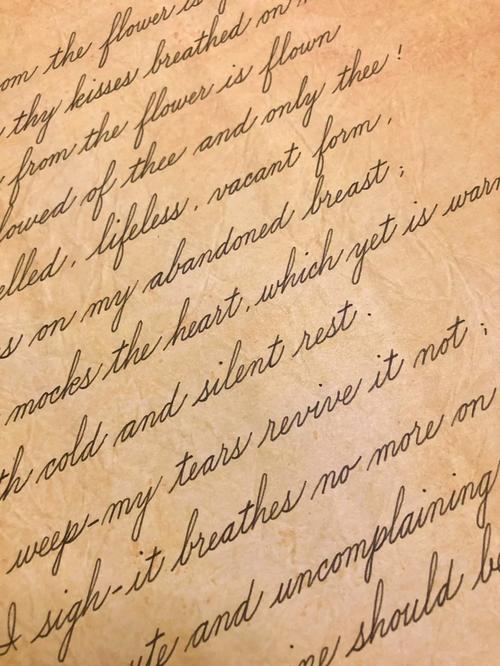 om the flower is
thy kisses breathed on
from the flower is flown
lowed of thee and only thee!
elled, lifeless, vacant form,
s on my abandoned breast;
mocks the heart, which yet is warm
th cold and silent rest.
weep-my tears revive it not;
I sigh-it breathes no more on
ute and uncomplaining
ine should be